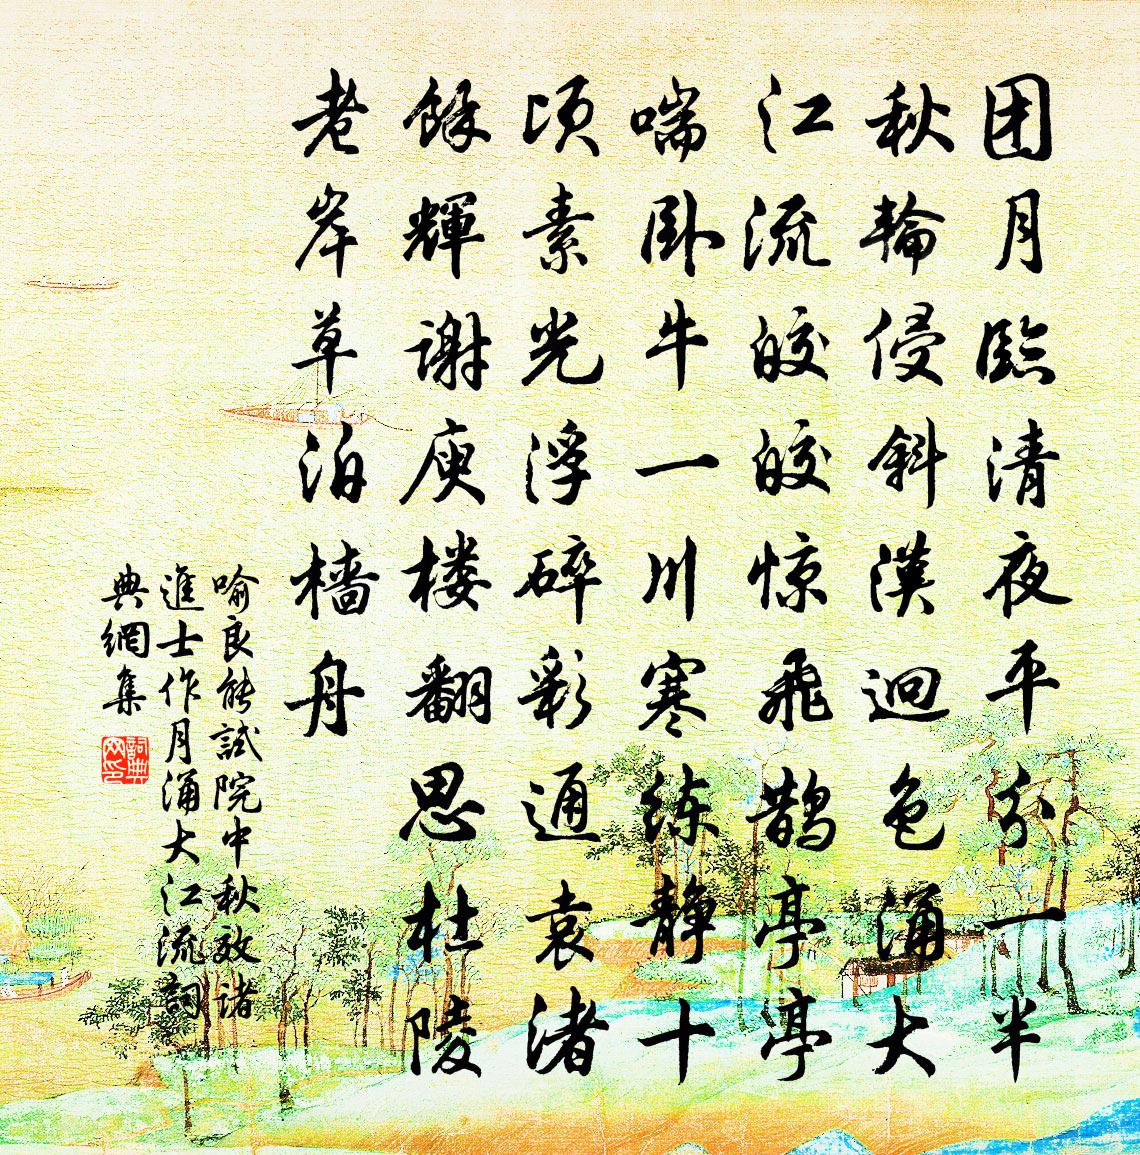 团月临清夜平分一半
秋輪侵斜漢迥色涌大
江流皎皎惊飛鹊亭亭
喘卧牛一川寒练静十
顷素光浮碎彩通袁渚
餘輝谢庾楼翻思杜陵
老岸草泊檣舟
喻良能試院中秋效诸
進士作月涌大江流詞
典網集
詞典
网印